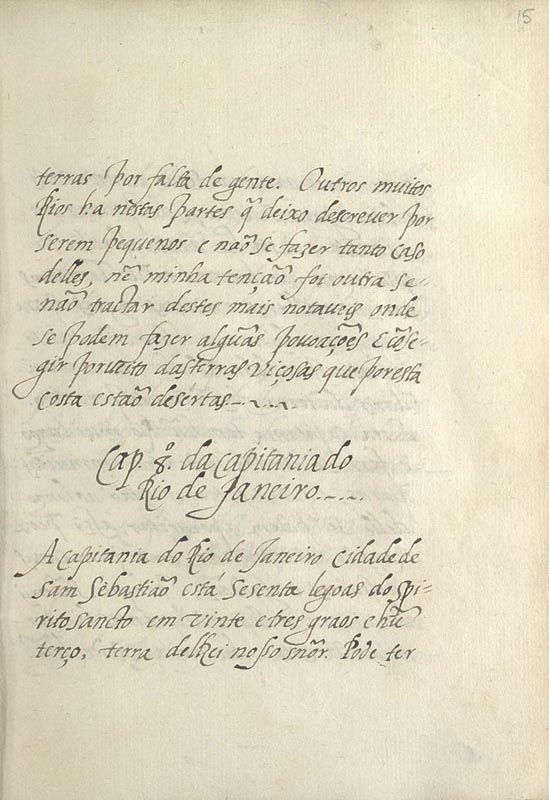 15
terras por falta de gente. Outros muitos
Rios ha nestas partes q̃ deixo descreuer por
serem pequenos e não se fazer tanto caso
delles, nẽ minha tenção foi outra se-
não tractar destes mais notaueis onde
se podem fazer algũas pouoações e cõse-
gir proueito das terras viçosas que por esta
costa estão desertas.
Cap. 8.º da Capitania do
Rio de Janeiro.
A Capitania do Rio de Janeiro Cidade de
Sam Sebastião está sesenta legoas do spi-
rito sancto em vinte e tres graos e hũ
terço, terra delRei nosso sñor. Pode ter